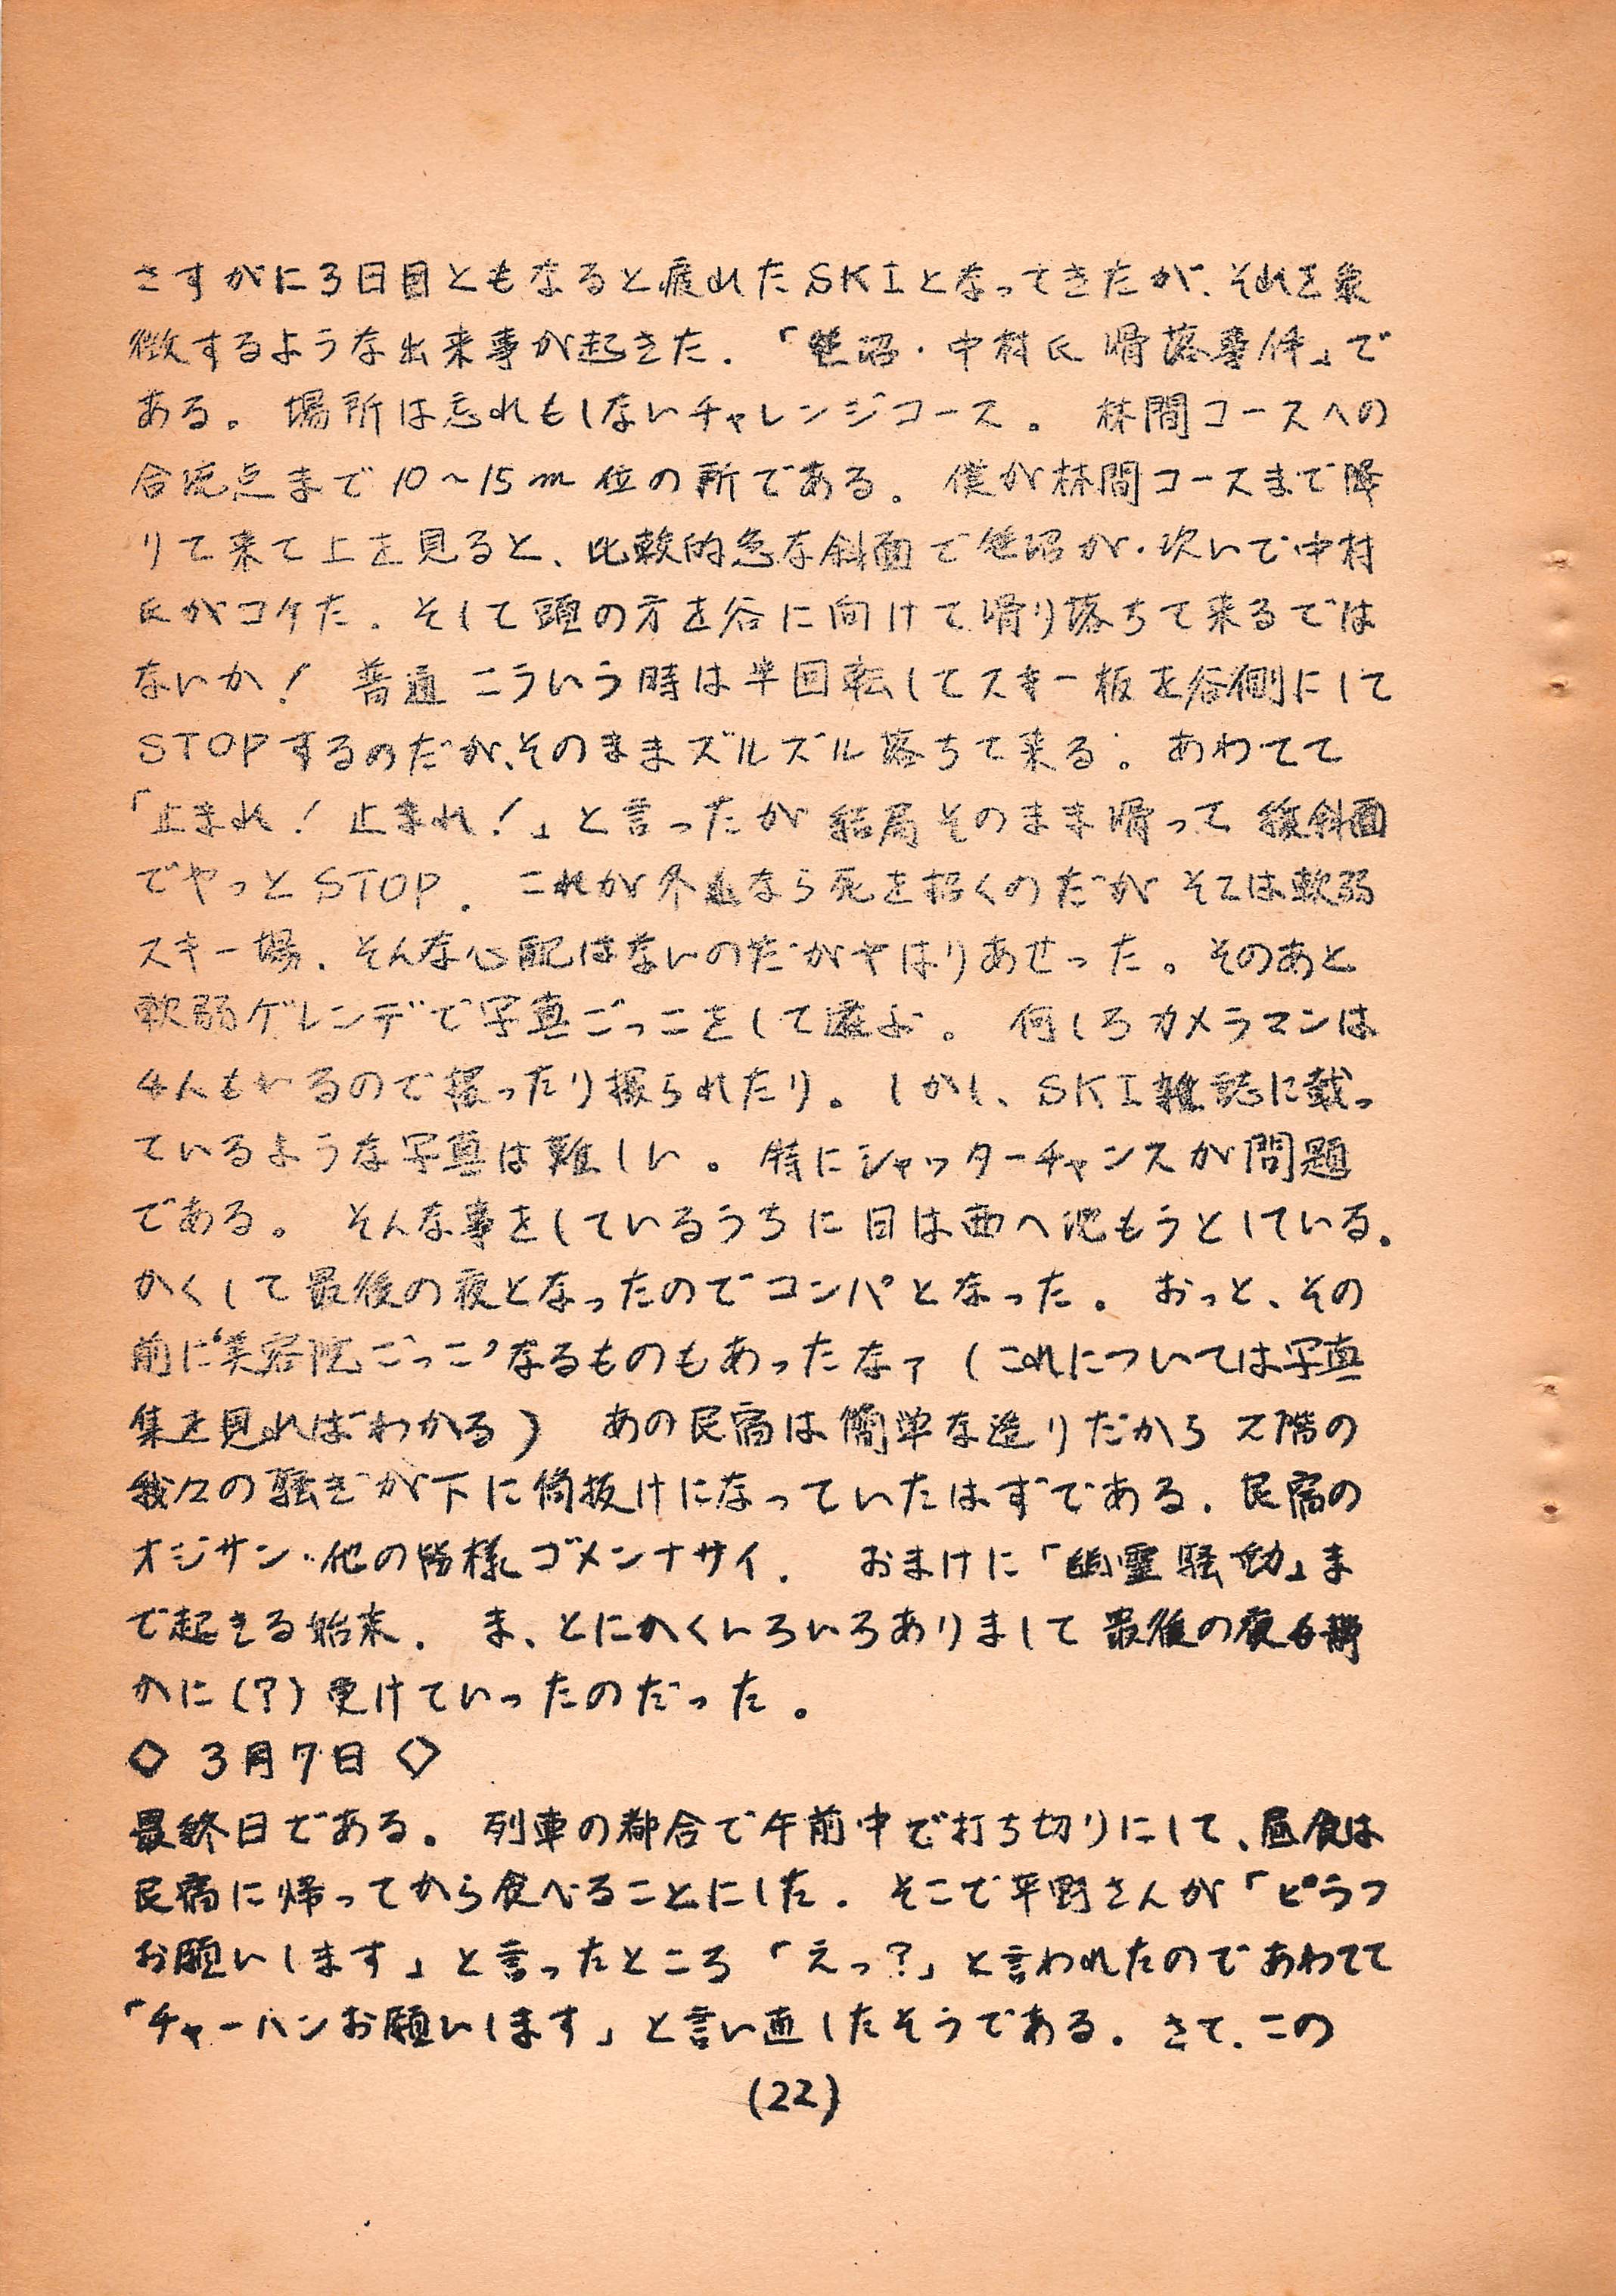 さすがに3日目ともなると疲れたSKIとなってきたが、それを象
徴するような出来事が起きた。「笹沼・中村氏滑落事件」で
ある。場所は忘れもしないチャレンジコース。林間コースへの
合流点まで10～15m位の所である。僕が林間コースまで降
りて来て上を見ると、比較的急な斜面で笹沼が・次いで中村
氏がコケた。そして頭の方を谷に向けて滑り落ちて来るでは
ないか！普通こういう時は半回転してスキー板を谷側にして
STOPするのだが、そのままズルズル落ちて来る。あわてて
「止まれ！止まれ！」と言ったが結局そのまま滑って緩斜面
でやっとSTOP。これが冬山なら死を招くのだがそこは軟弱
スキー場。そんな心配はないのだがやはりあせった。そのあと
軟弱ゲレンデで写真ごっこをして遊ぶ。何しろカメラマンは
4人もいるので撮ったり撮られたり。しかし、SKI雑誌に載っ
ているような写真は難しい。特にシャッターチャンスが問題
である。そんな事をしているうちに日は西へ沈もうとしている。
かくして最後の夜となったのでコンパとなった。おっと、その
前に‘美容院ごっこ’なるものもあったなァ（これについては写真
集を見ればわかる）あの民宿は簡単な造りだから2階の
我々の騒ぎが下に筒抜けになっていたはずである。民宿の
オジサン・他の皆様ゴメンナサイ。おまけに「幽霊騒動」ま
で起きる始末。ま、とにかくいろいろありまして最後の夜も静
かに（？）更けていったのだった。
◇ 3月7日 ◇
最終日である。列車の都合で午前中で打ち切りにして、昼食は
民宿に帰ってから食べることにした。そこで平野さんが「ピラフ
お願いします」と言ったところ「えっ？」と言われたのであわてて
「チャーハンお願いします」と言い直したそうである。さて、この
(22)